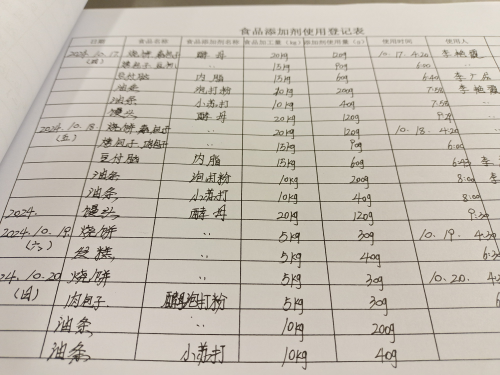 食品添加剂使用登记表
日期 食品名称 食品添加剂名称 食品加工量(kg) 添加剂使用量(g) 使用时间 使用人
2024.10.17 烧饼 酵母 20kg 120g 10.17.4:20 李
(四) 〃 15kg 90g 6:00
豆付脑 内脂 15kg 60g 6:40 李
油条 泡打粉 10kg 200g 7:58 李
油条 小苏打 10kg 40g 7:58
馒头 酵母 20kg 120g
2024.10.18 烧饼 〃 20kg 120g 10.18.4:20
(五) 〃 15kg 90g 6:00
豆付脑 内脂 15kg 60g 6:43 李
油条 泡打粉 10kg 200g 8:00 李
油条 小苏打 10kg 40g 8:00
2024. 馒头 酵母 20kg 120g 9:30
2024.10.19 烧饼 〃 5kg 30g 10.19.4:30
(六) 糕 〃 5kg 40g 6:3
24.10.20 烧饼 〃 5kg 30g 10.20.4:2
(日) 肉包子 泡打粉 5kg 30g 6
油条 〃 10kg 200g
油条 小苏打 10kg 40g